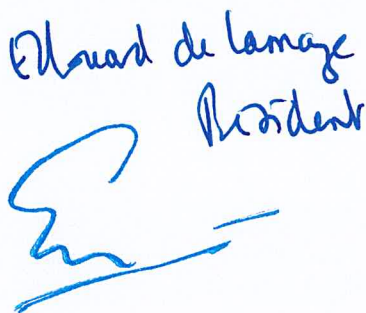 Edouard de Lamaze
Président